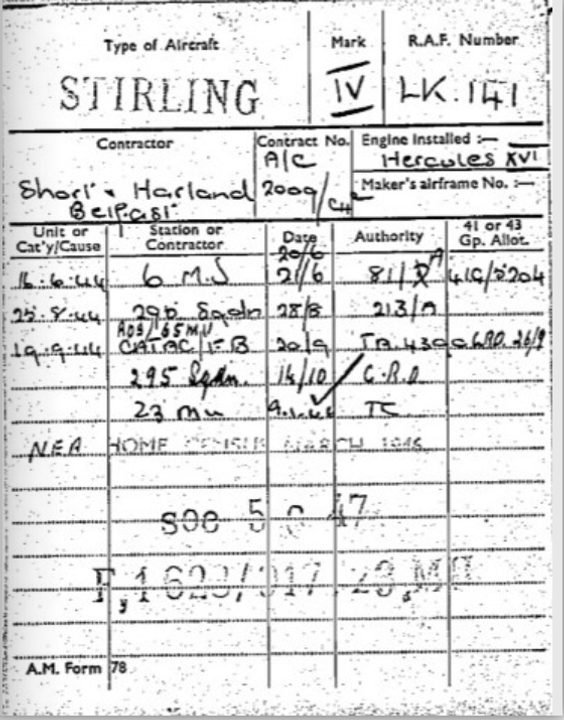 Type of Aircraft Mark R.A.F. Number
STIRLING IV LK.141
Contractor Contract No. Engine Installed :—
A/C Hercules XVI
Short & Harland 2009/C4 Maker's airframe No. :—
Belfast
Unit or Cat'y/Cause Station or Contractor Date Authority 41 or 43 Gp. Allot.
20/6
16.6.44 6 M.S 21/6 81/ A 41G/5204
25.8.44 295 Sqdn 28/8 213/A
ROS/65MU
19.9.44 CATAC 20/9 TB. 4390 GRD. 26/9
295 Sqdn. 14/10 C.R.D
23 mu 9.1.46 TC
N.E.A HOME CENSUS MARCH 1946
soc 5 47
F,1623/317 23,MU
A.M. Form 78